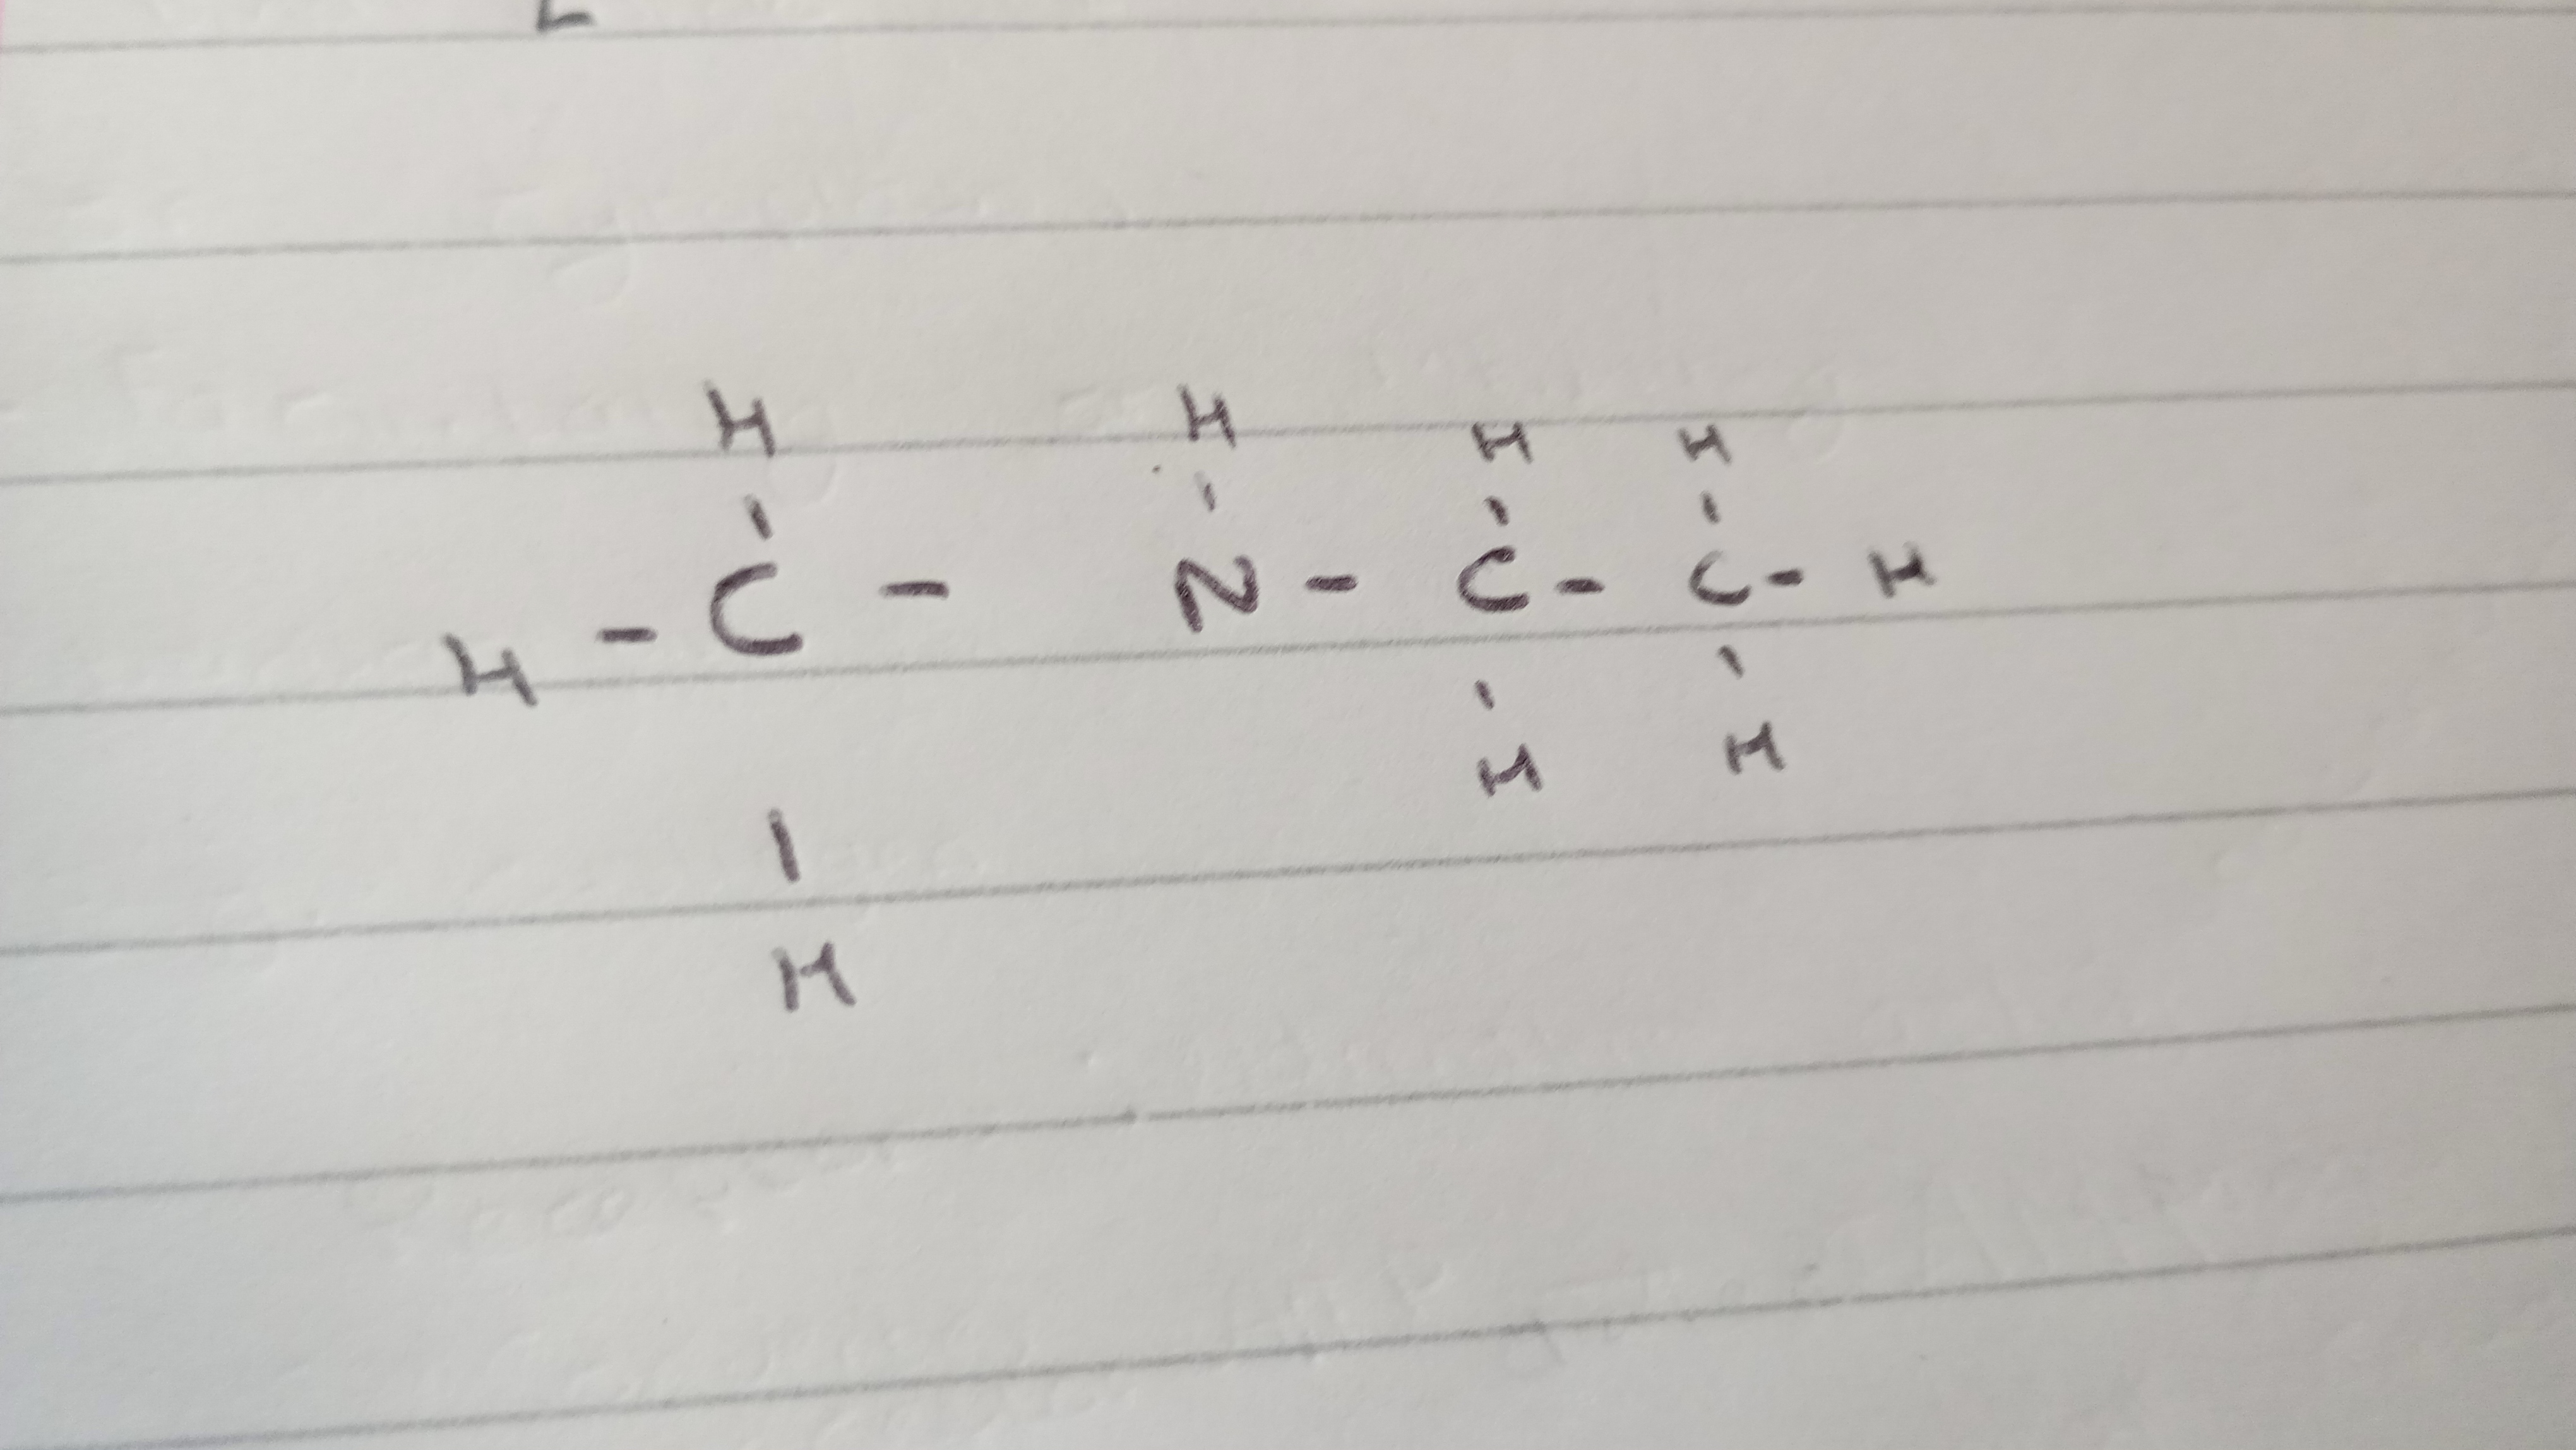 H H H H
H - C - N - C - C - H
H H
H